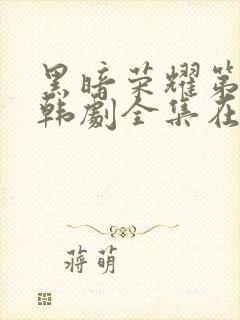 黑暗荣耀第
韩剧全集在
蒋萌